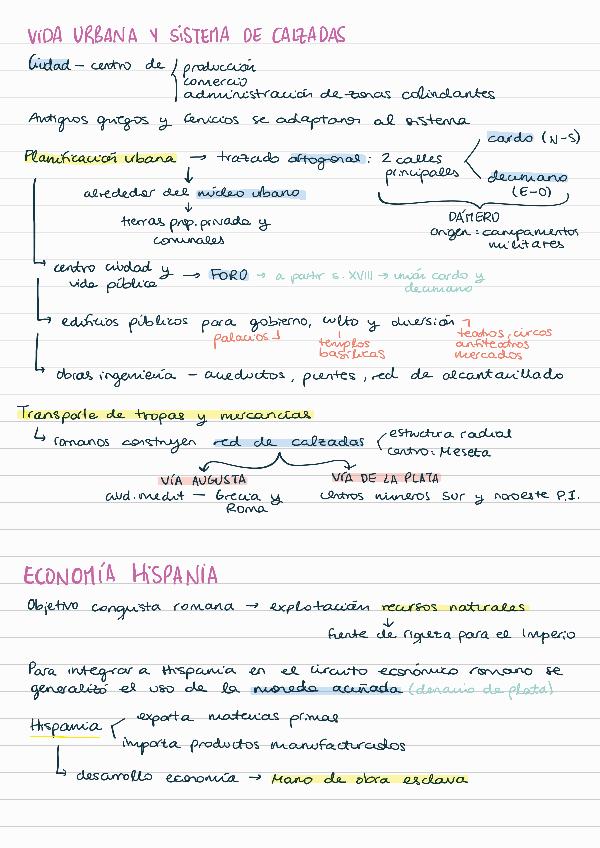 VIDA URBANA Y SISTEMA DE CALZADAS
Ciudad – centro de producción
comercio
administración de zonas colindantes
Antiguos griegos y fenicios se adaptaron al sistema
cardo (N-S)
Planificación urbana → trazado ortogonal: 2 calles
principales
decumano
(E-O)
alrededor del núcleo urbano
DAMERO
tierras prop. privada y
comunales
origen: campamentos
militares
centro ciudad y
vida pública → FORO → a partir s. XVIII → unión cardo y
decumano
edificios públicos para gobierno, culto y diversión
palacios
templos
basílicas
teatros, circos
anfiteatros
mercados
obras ingeniería – aueductos, puentes, red de alcantarillado
Transporte de tropas y mercancías
romanos construyen red de calzadas
estructura radial
centro: Meseta
VÍA AUGUSTA
VÍA DE LA PLATA
medit – Grecia y
Roma
centros mineros sur y noroeste P.I.
ECONOMÍA HISPANIA
Objetivo conquista romana → explotación recursos naturales
fuente de riqueza para el Imperio
Para integrar a Hispania en el circuito económico romano se
generalizó el uso de la moneda acuñada (denario de plata)
Hispania
exporta materias primas
importa productos manufacturados
desarrollo economía → Mano de obra esclava